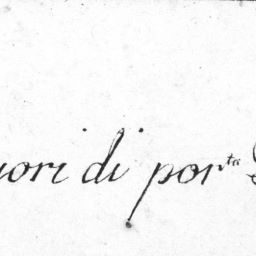 uori di por.ta